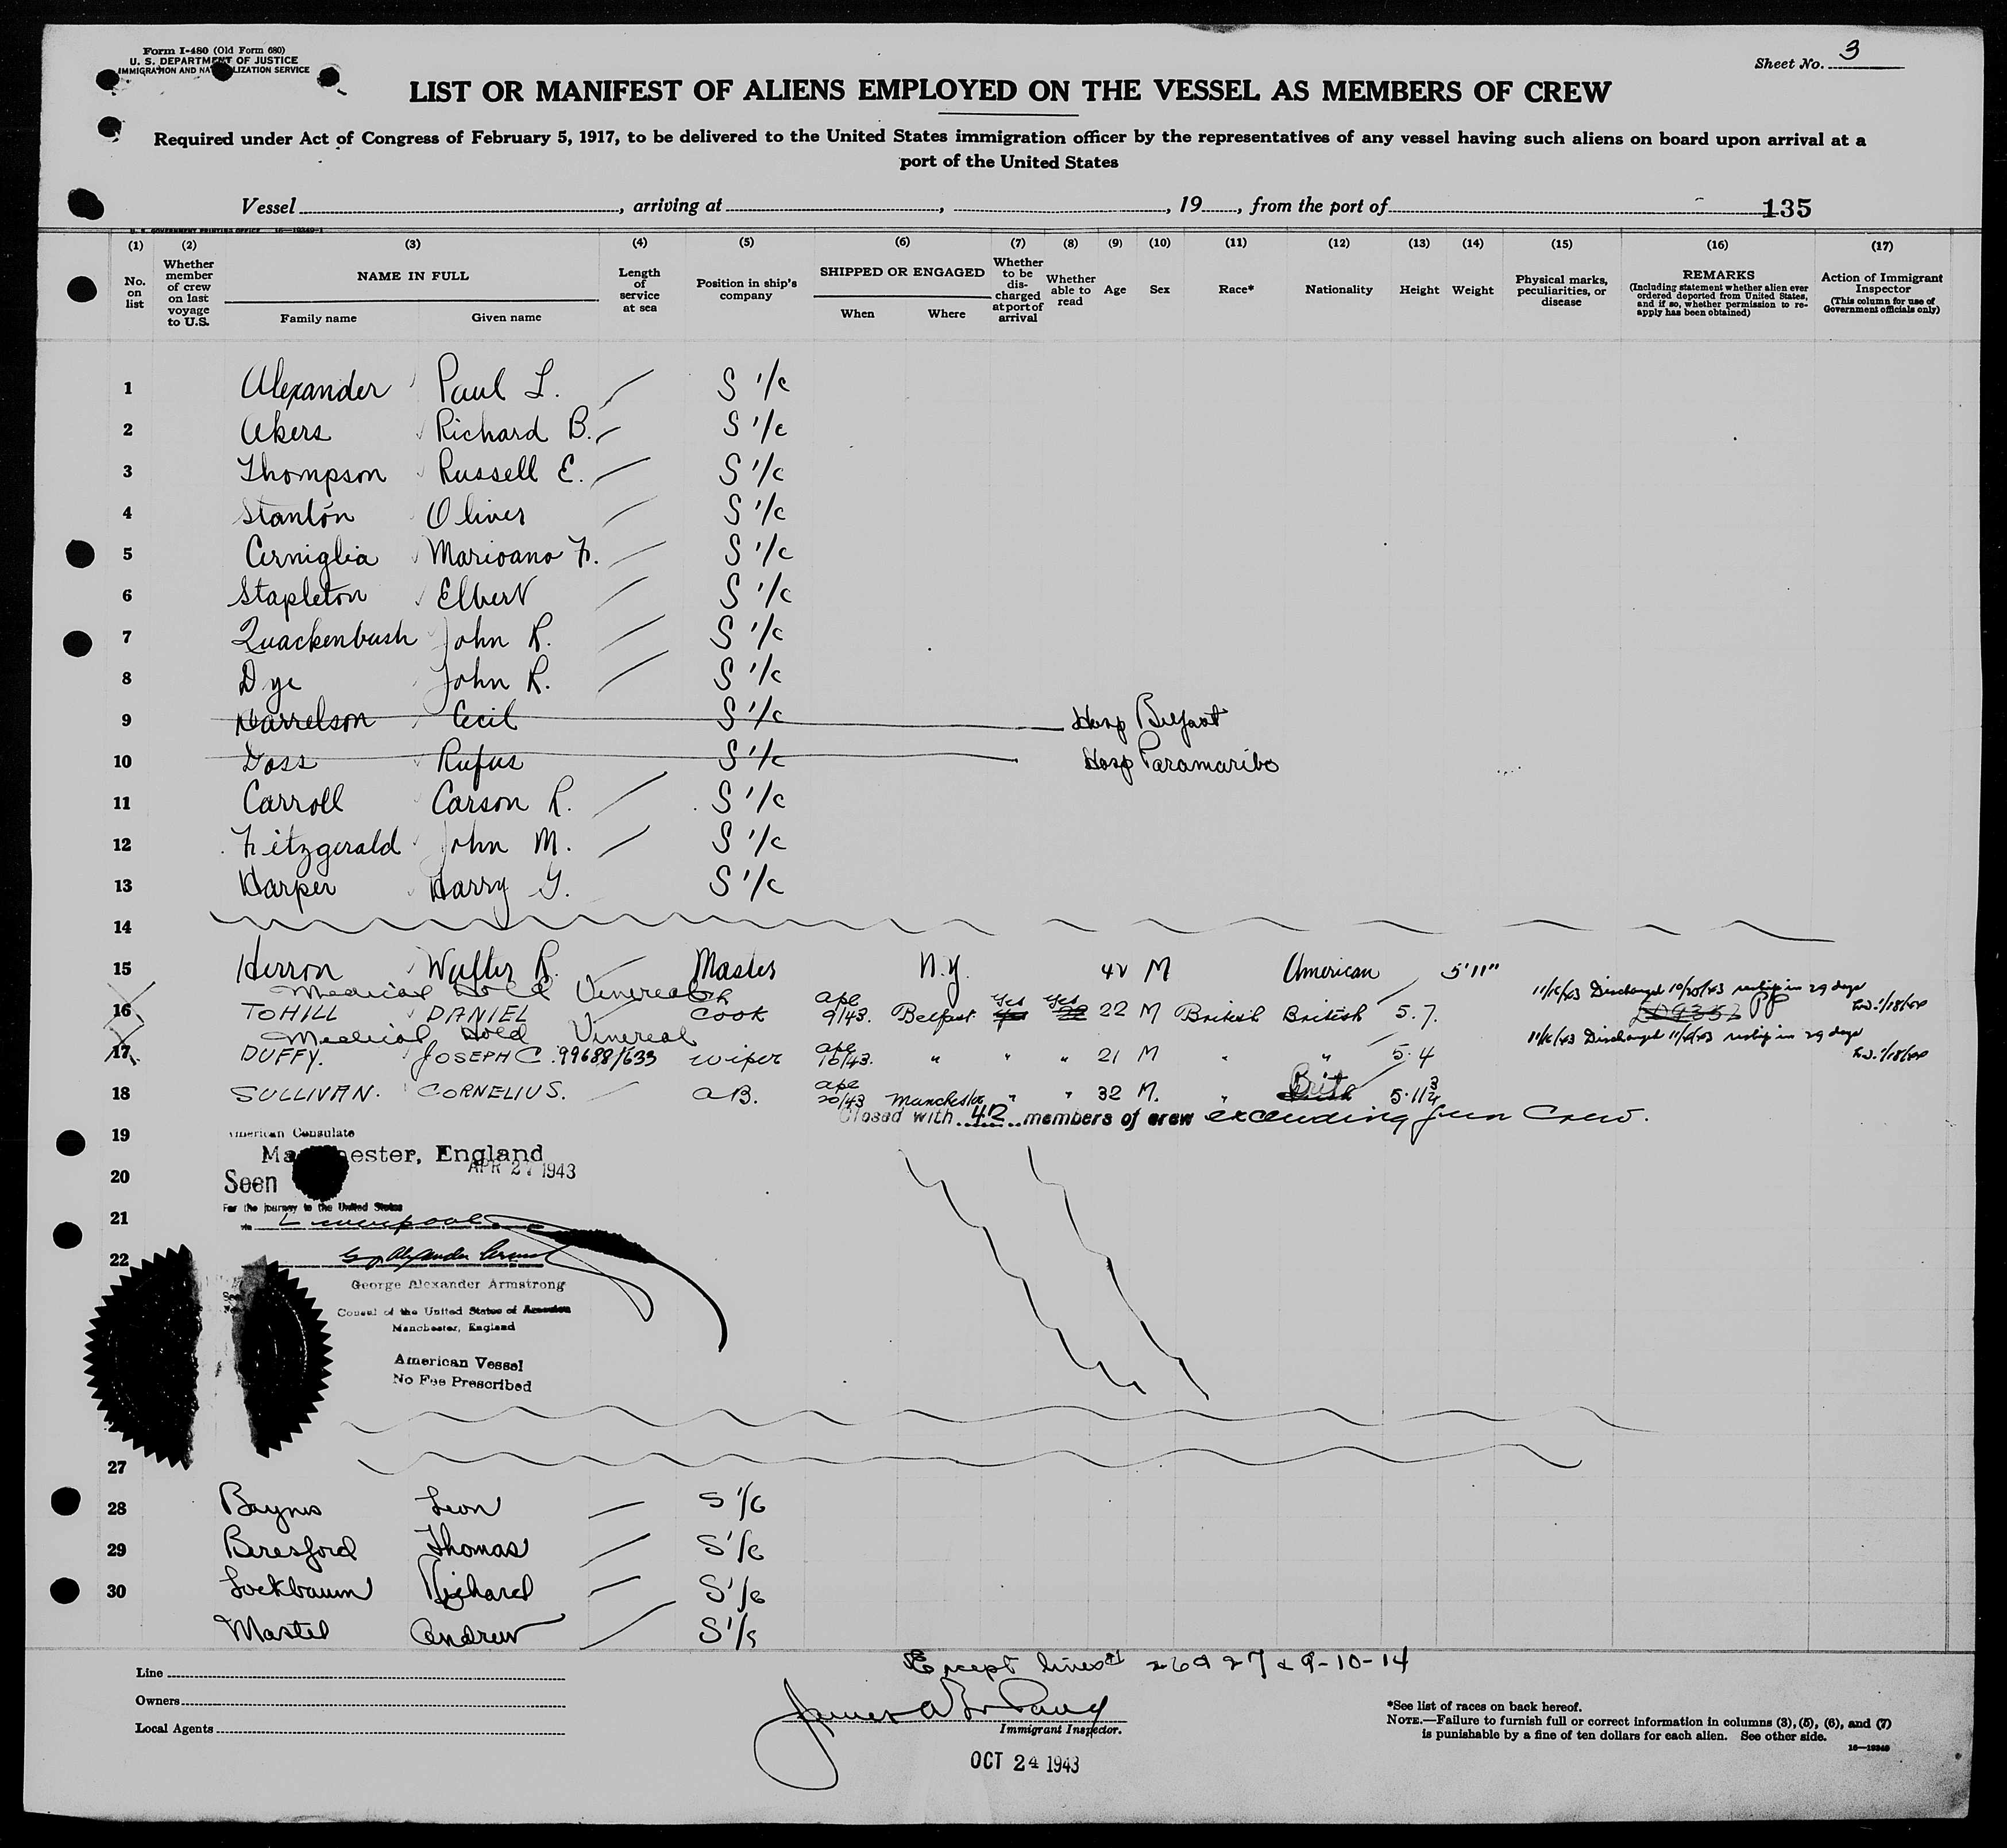 Form I-480 (Old Form 680)
U. S. DEPARTMENT OF JUSTICE
IMMIGRATION AND NATURALIZATION SERVICE
Sheet No. 3
LIST OR MANIFEST OF ALIENS EMPLOYED ON THE VESSEL AS MEMBERS OF CREW
Required under Act of Congress of February 5, 1917, to be delivered to the United States immigration officer by the representatives of any vessel having such aliens on board upon arrival at a
port of the United States
Vessel , arriving at , , 19 , from the port of 135
U. S. GOVERNMENT PRINTING OFFICE 16—19349-1
(1) (2) (3) (4) (5) (6) (7) (8) (9) (10) (11) (12) (13) (14) (15) (16) (17)
No. on list
Whether member of crew on last voyage to U.S.
NAME IN FULL
Family name Given name
Length of service at sea
Position in ship's company
SHIPPED OR ENGAGED
When Where
Whether to be discharged at port of arrival
Whether able to read
Age Sex Race* Nationality Height Weight
Physical marks, peculiarities, or disease
REMARKS
(Including statement whether alien ever ordered deported from United States, and if so, whether permission to reapply has been obtained)
Action of Immigrant Inspector
(This column for use of Government officials only)
1 Alexander Paul L. S 1/c
2 Akers Richard B. S 1/c
3 Thompson Russell E. S 1/c
4 Stanton Oliver S 1/c
5 Cerniglia Marioano F. S 1/c
6 Stapleton Elbert S 1/c
7 Quackenbush John R. S 1/c
8 Dye John R. S 1/c
9 Harrelson Cecil S 1/c Hosp Belfast
10 Goss Rufus S 1/c Hosp Paramaribo
11 Carroll Carson R. S 1/c
12 Fitzgerald John M. S 1/c
13 Harper Harry G. S 1/c
14
15 Herron Walter R. Master N.Y. 42 M American 5'11"
Medical Hold Venereal
11/16/43 Discharged 10/25/43 reship in 29 days
16 TOHILL DANIEL COOK Ape 9/43. Belfast yes yes 22 M British British 5.7.
Medical Hold Venereal
11/16/43 Discharged reship in 29 days
17 DUFFY. JOSEPH C. 99688/633 wiper ape 16/43. " " " 21 M " " 5.4
18 SULLIVAN. CORNELIUS. A.B. ape 20/43 Manchester " " 32 M. " Brit 5.11 3/4
Closed with 42 members of crew excluding gun Crew.
19 American Consulate
Manchester, England
APR 27 1943
20 Seen
For the journey to the United States
21 via Liverpool
22
George Alexander Armstrong
Consul of the United States of America
Manchester, England
American Vessel
No Fee Prescribed
27
28 Baynes Leon S 1/c
29 Beresford Thomas S 1/c
30 Lockbaum Richard S 1/c
Martel Andrew S 1/c
Except lines 26 & 27 & 9-10-14
Line
Owners
Local Agents
Immigrant Inspector.
OCT 24 1943
*See list of races on back hereof.
NOTE.—Failure to furnish full or correct information in columns (3), (5), (6), and (7)
is punishable by a fine of ten dollars for each alien. See other side.
16—19349